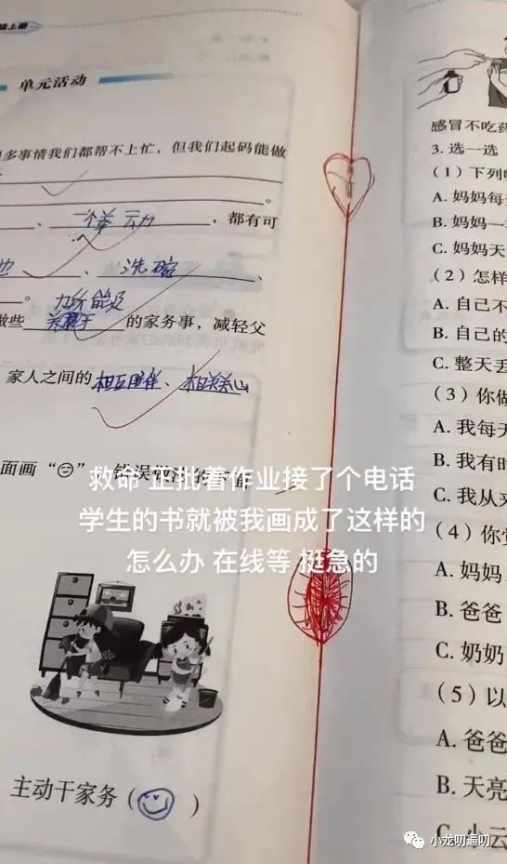 上册
单元活动
多事情我们都帮不上忙，但我们起码能做
、
，都有可
、洗碗、
力所能及
做些
的家务事，减轻父
家人之间的相互理解、相互关心
面画“😊”
救命 正批着作业接了个电话
学生的书就被我画成了这样的
怎么办 在线等 挺急的
主动干家务（ ）
感冒不吃药
3. 选一选
（1）下列
A. 妈妈每
B. 妈妈一
C. 妈妈天
（2）怎样
A. 自己不
B. 自己的
C. 整天丢
（3）你做
A. 我每天
B. 我有时
C. 我从来
（4）你觉
A. 妈妈
B. 爸爸
C. 奶奶
（5）以
A. 爸爸
B. 天亮
C. 小云
小龙叨漏叨